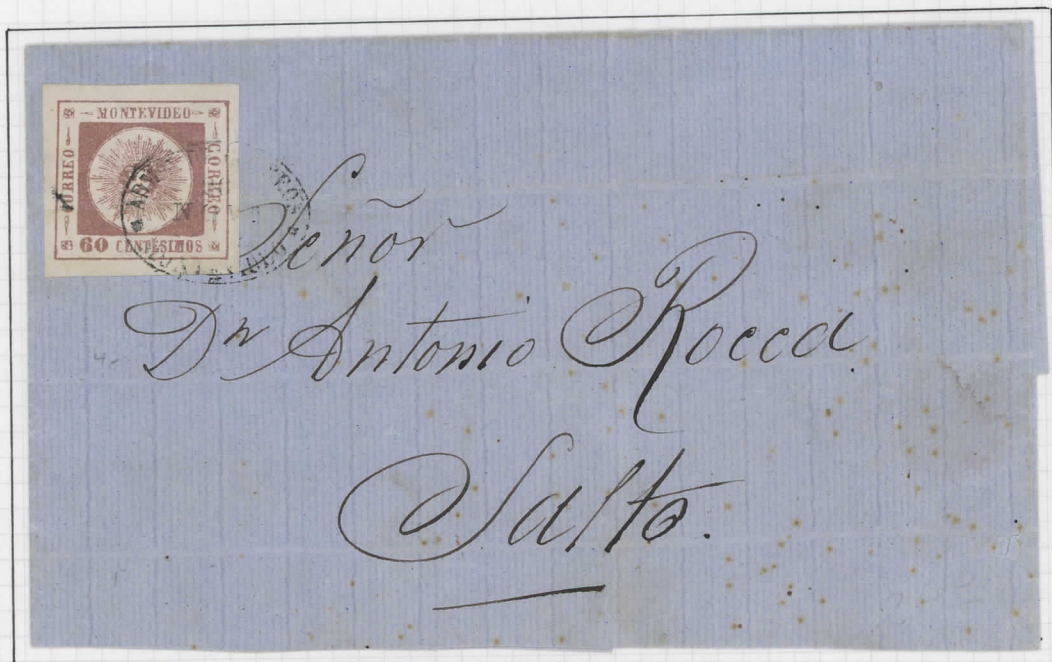 MONTEVIDEO
CORREO
CORREO
60 CENTESIMOS
Señor
Dn Antonio Rocca
Salto.